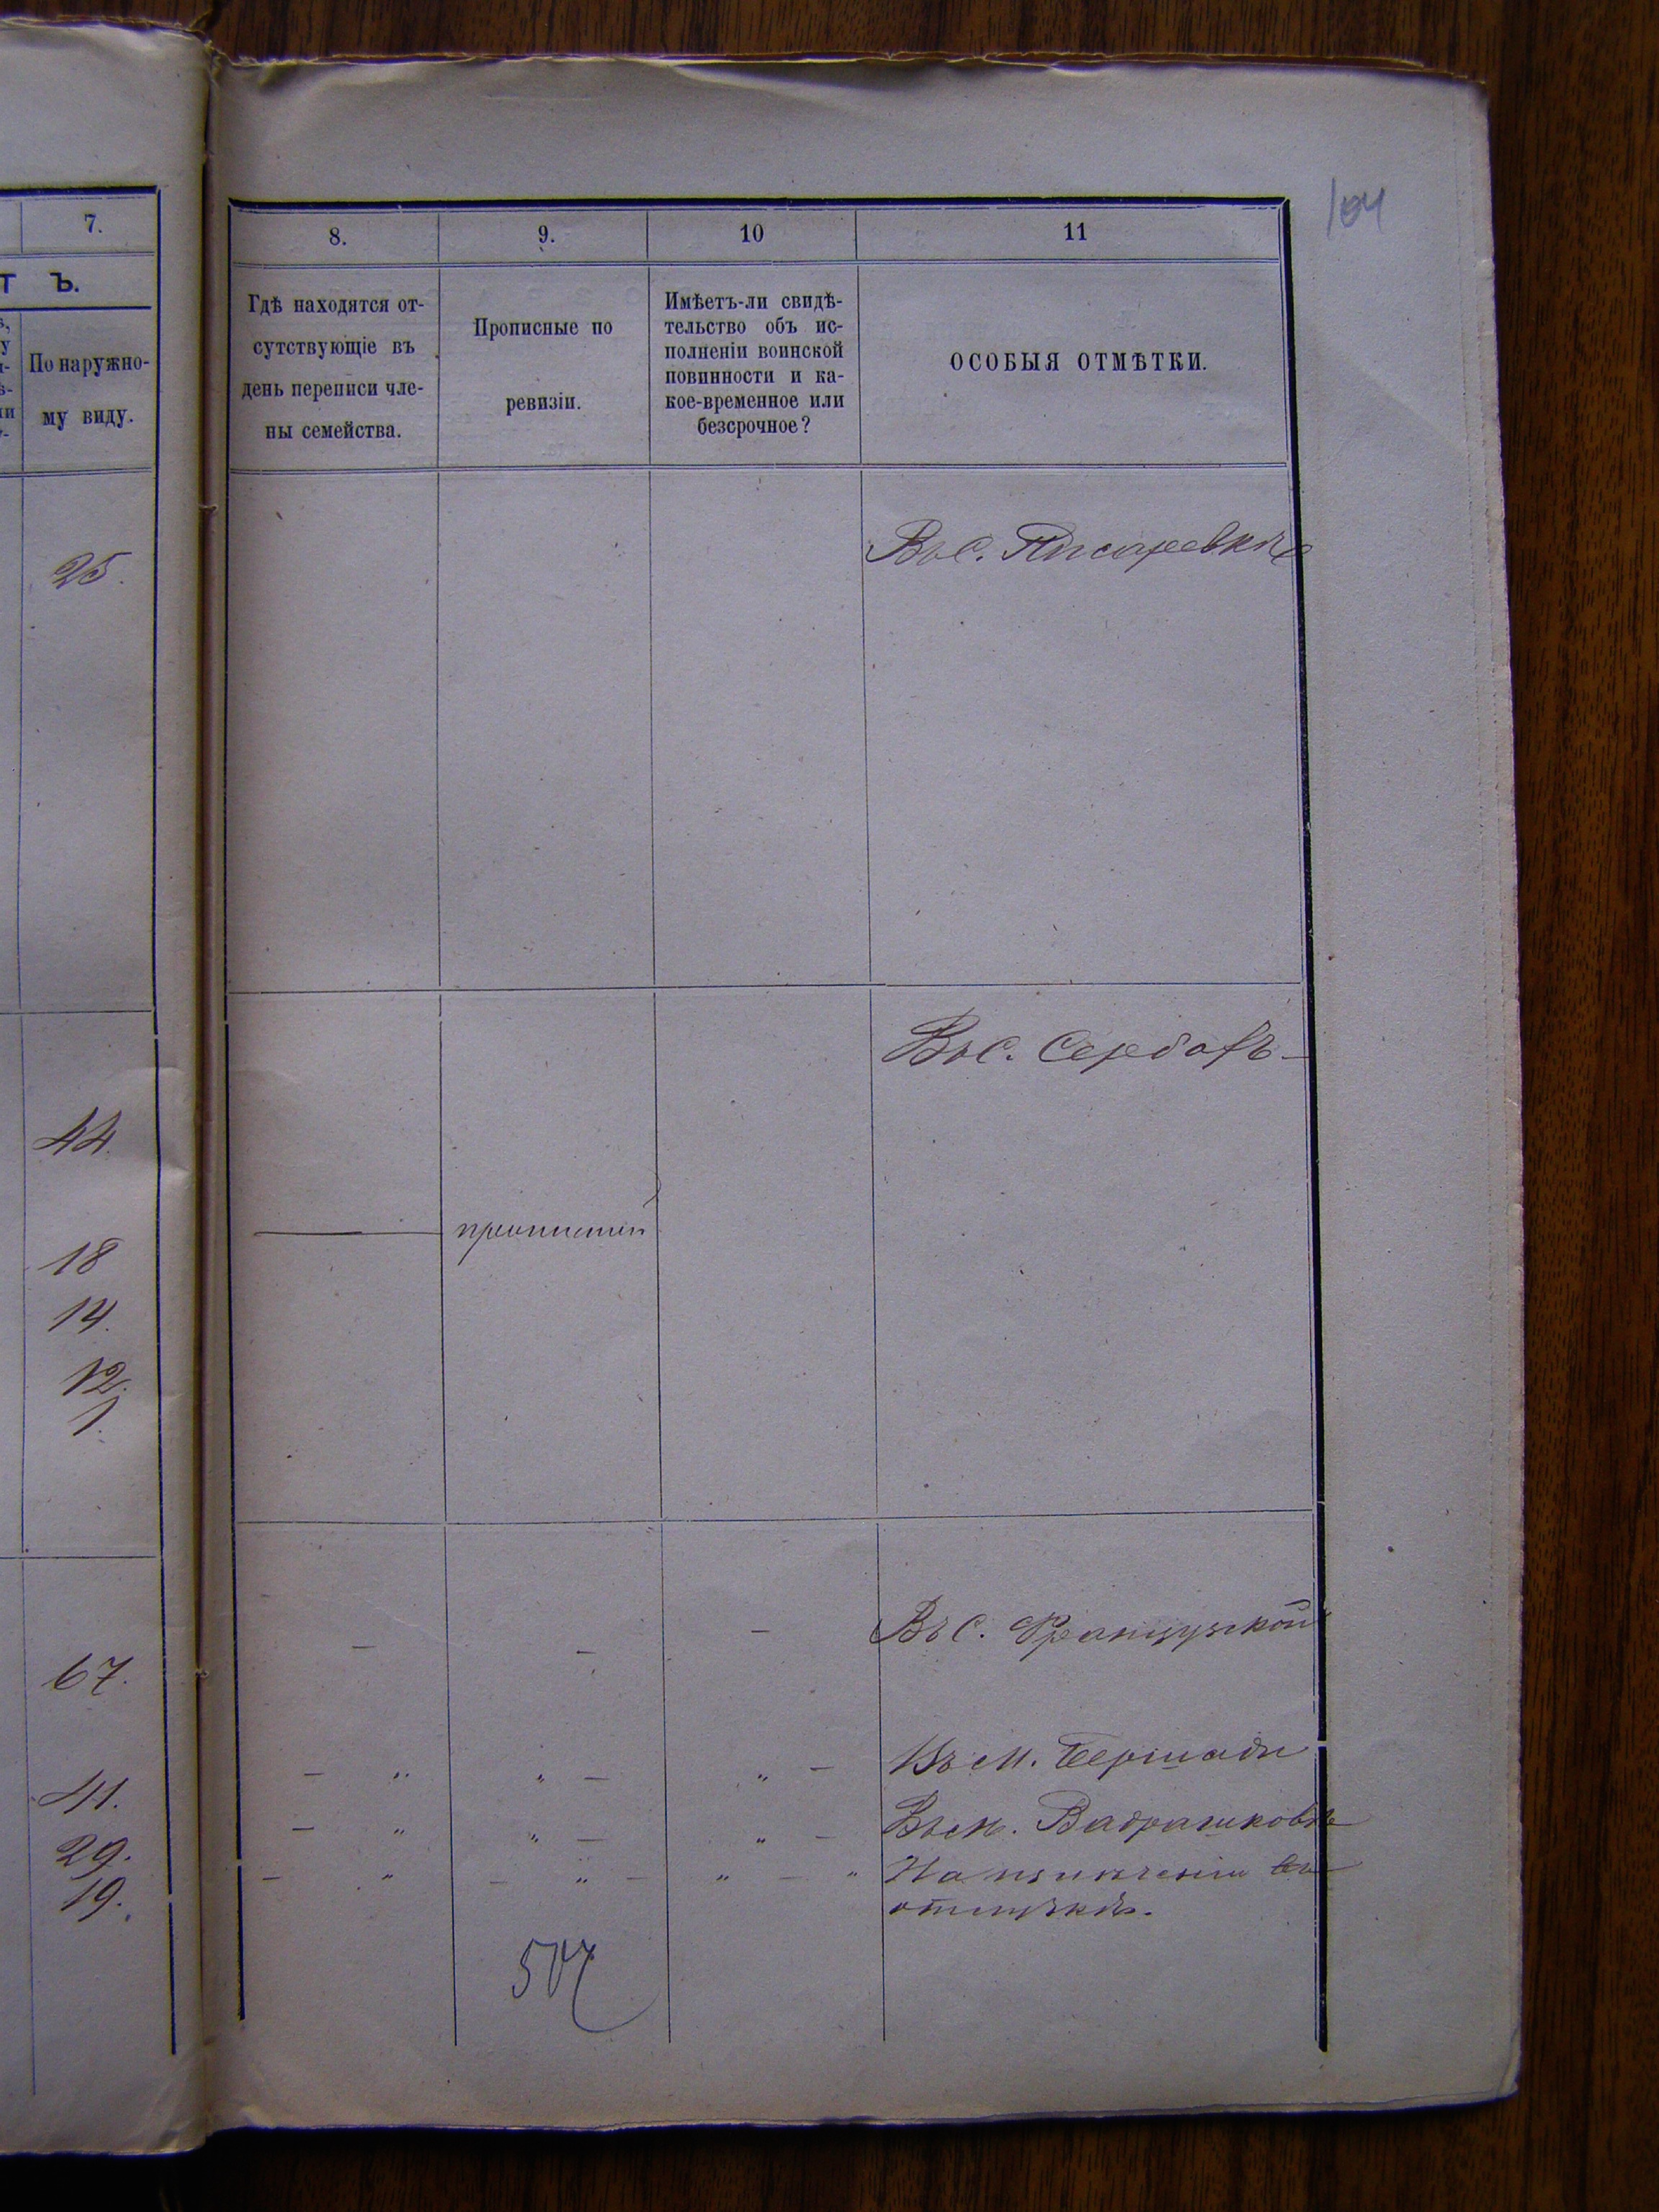 104
7.
8.
9.
10
11
Т Ъ.
По наружно-
му виду.
Гдѣ находятся от-
сутствующіе въ
день переписи чле-
ны семейства.
Прописные по
ревизіи.
Имѣетъ-ли свидѣ-
тельство объ ис-
полненіи воинской
повинности и ка-
кое-временное или
безсрочное?
ОСОБЫЯ ОТМѢТКИ.
25.
Въ С. Писаревкѣ
Въ С. Сербахъ
44.
18
14.
12.
1.
67.
Въ С. Французской
41.
Въ М. Бершади
29.
Въ м.
19.
На
507